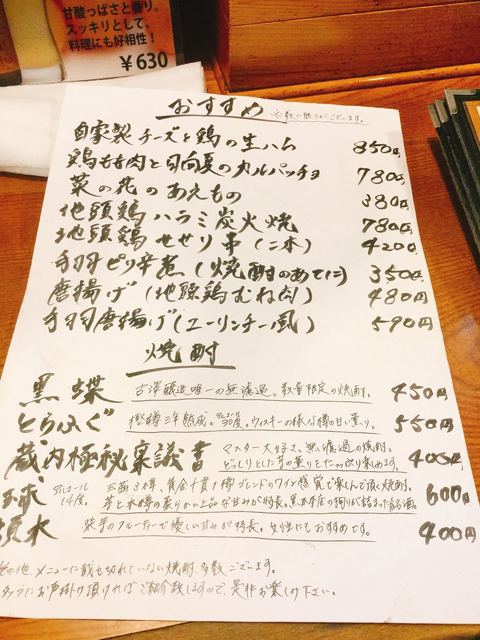 甘酸っぱさと香り。
スッキリとして、
料理にも好相性!
¥630
おすすめ ※数に限りがございます。
自家製チーズと鶏の生ハム 850円
鶏もも肉と日向夏のカルパッチョ 780円
菜の花のあえもの 380円
地頭鶏ハラミ炭火焼 780円
地頭鶏せせり串(二本) 420円
手羽ピリ辛煮(焼酎のあてに) 350円
唐揚げ(地頭鶏むね肉) 480円
手羽唐揚げ(ユーリンチー風) 590円
焼酎
黒蝶 古澤醸造唯一の無濾過。数量限定の焼酎。 450円
とらふぐ 樫樽三年熟成。アルコール30度。ウィスキーの様な樽の甘い薫り。 550円
蔵内極秘稟議書 マスター大好き。無濾過の焼酎。 400円
どっしりとした芋の薫りをたっぷり楽しめます。
球 アルコール14度。 ワイン感覚で楽しんで頂く焼酎。 600円
芋と水樽の薫りからの上品な甘みが特長。黒木本店の拘りが詰まった銘酒。
水 紫芋のフルーティーで優しい甘みが特長。女性にもおすすめです。 400円
その他、メニューに載せ切れていない焼酎、多数ございます。
スタッフにお声掛け頂ければご紹介致しますので、是非お楽しみ下さい。